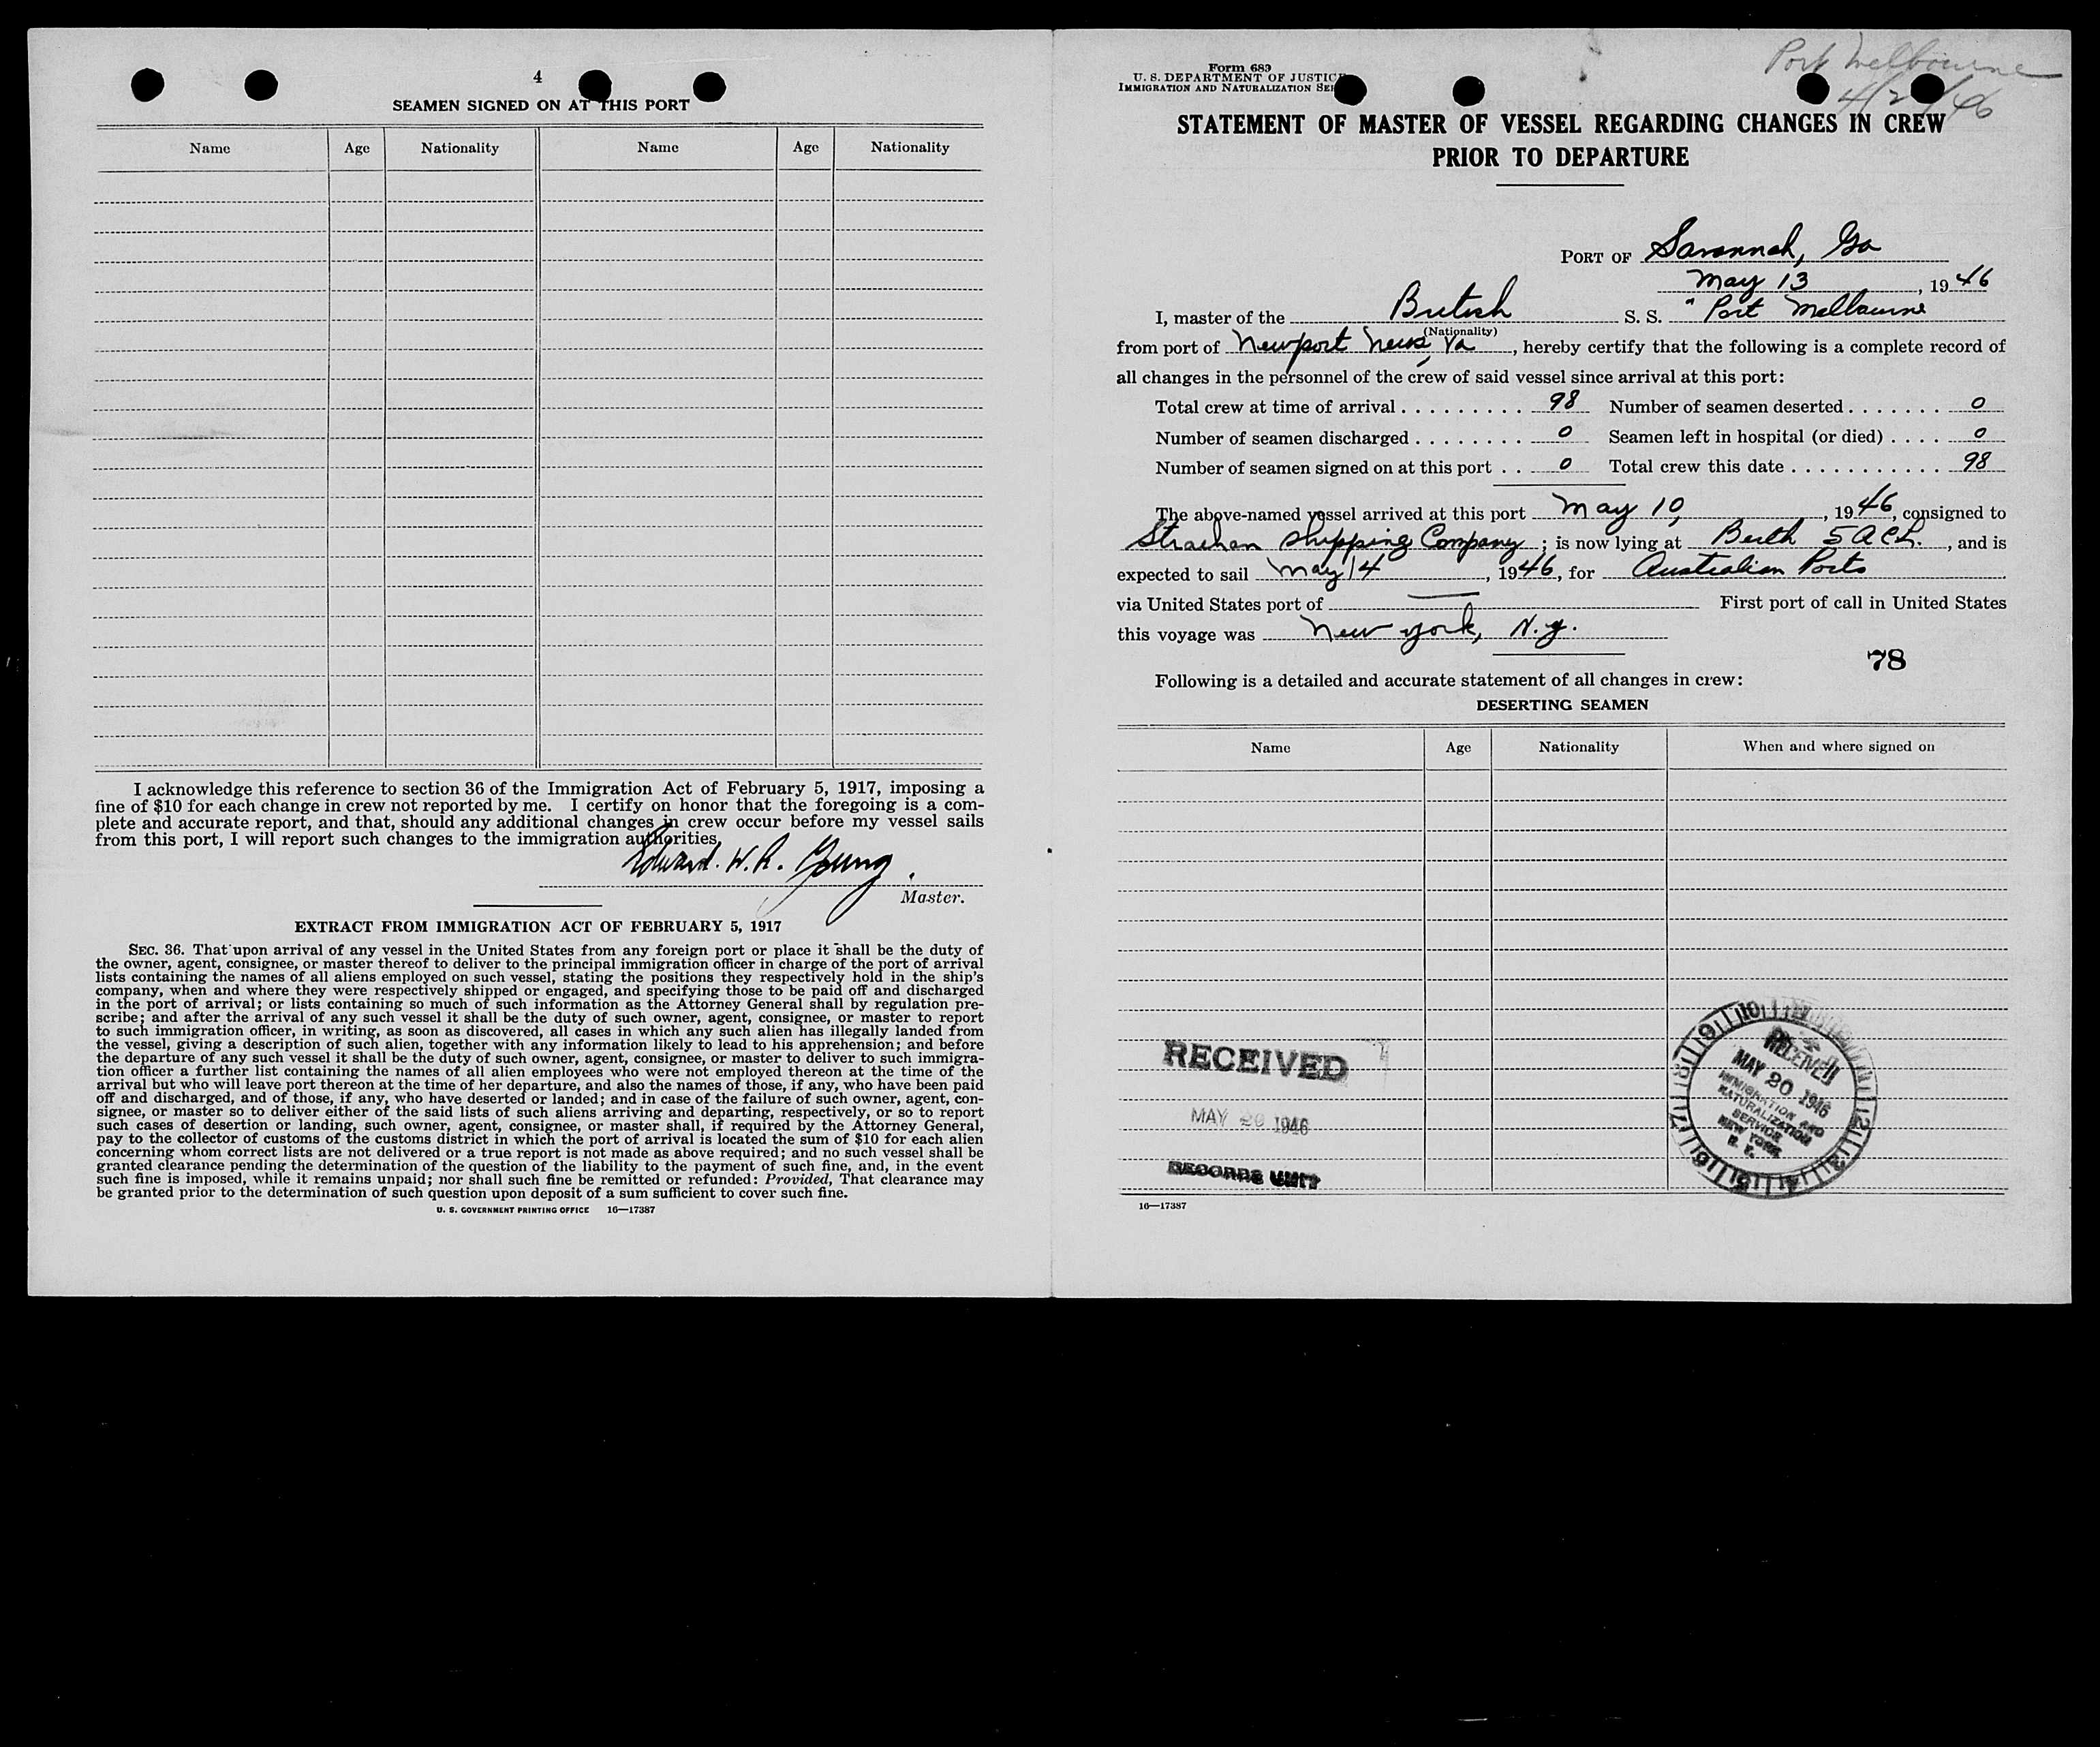 4
SEAMEN SIGNED ON AT THIS PORT
Name Age Nationality Name Age Nationality
I acknowledge this reference to section 36 of the Immigration Act of February 5, 1917, imposing a
fine of $10 for each change in crew not reported by me. I certify on honor that the foregoing is a com-
plete and accurate report, and that, should any additional changes in crew occur before my vessel sails
from this port, I will report such changes to the immigration authorities.
Edward. W. R. Young
Master.
EXTRACT FROM IMMIGRATION ACT OF FEBRUARY 5, 1917
SEC. 36. That upon arrival of any vessel in the United States from any foreign port or place it shall be the duty of
the owner, agent, consignee, or master thereof to deliver to the principal immigration officer in charge of the port of arrival
lists containing the names of all aliens employed on such vessel, stating the positions they respectively hold in the ship's
company, when and where they were respectively shipped or engaged, and specifying those to be paid off and discharged
in the port of arrival; or lists containing so much of such information as the Attorney General shall by regulation pre-
scribe; and after the arrival of any such vessel it shall be the duty of such owner, agent, consignee, or master to report
to such immigration officer, in writing, as soon as discovered, all cases in which any such alien has illegally landed from
the vessel, giving a description of such alien, together with any information likely to lead to his apprehension; and before
the departure of any such vessel it shall be the duty of such owner, agent, consignee, or master to deliver to such immigra-
tion officer a further list containing the names of all alien employees who were not employed thereon at the time of the
arrival but who will leave port thereon at the time of her departure, and also the names of those, if any, who have been paid
off and discharged, and of those, if any, who have deserted or landed; and in case of the failure of such owner, agent, con-
signee, or master so to deliver either of the said lists of such aliens arriving and departing, respectively, or so to report
such cases of desertion or landing, such owner, agent, consignee, or master shall, if required by the Attorney General,
pay to the collector of customs of the customs district in which the port of arrival is located the sum of $10 for each alien
concerning whom correct lists are not delivered or a true report is not made as above required; and no such vessel shall be
granted clearance pending the determination of the question of the liability to the payment of such fine, and, in the event
such fine is imposed, while it remains unpaid; nor shall such fine be remitted or refunded: Provided, That clearance may
be granted prior to the determination of such question upon deposit of a sum sufficient to cover such fine.
U. S. GOVERNMENT PRINTING OFFICE 16—17387
Port Melbourne
Form 689
U. S. DEPARTMENT OF JUSTICE
IMMIGRATION AND NATURALIZATION
STATEMENT OF MASTER OF VESSEL REGARDING CHANGES IN CREW
PRIOR TO DEPARTURE
PORT OF Savannah, Ga
May 13, 1946
I, master of the British S. S. "Port Melbourne
(Nationality)
from port of Newport News, Va, hereby certify that the following is a complete record of
all changes in the personnel of the crew of said vessel since arrival at this port:
Total crew at time of arrival . . . . . . . . . 98 Number of seamen deserted . . . . . . . 0
Number of seamen discharged . . . . . . . . 0 Seamen left in hospital (or died) . . . . 0
Number of seamen signed on at this port . . 0 Total crew this date . . . . . . . . . . . 98
The above-named vessel arrived at this port May 10, 1946, consigned to
Strachan Shipping Company; is now lying at Berth 5 A C L., and is
expected to sail May 14, 1946, for Australian Ports
via United States port of — First port of call in United States
this voyage was New York, N.Y.
78
Following is a detailed and accurate statement of all changes in crew:
DESERTING SEAMEN
Name Age Nationality When and where signed on
RECEIVED
MAY 20 1946
RECORDS UNIT
RECEIVED
MAY 20 1946
IMMIGRATION AND
NATURALIZATION
SERVICE
NEW YORK
N. Y.
16—17387